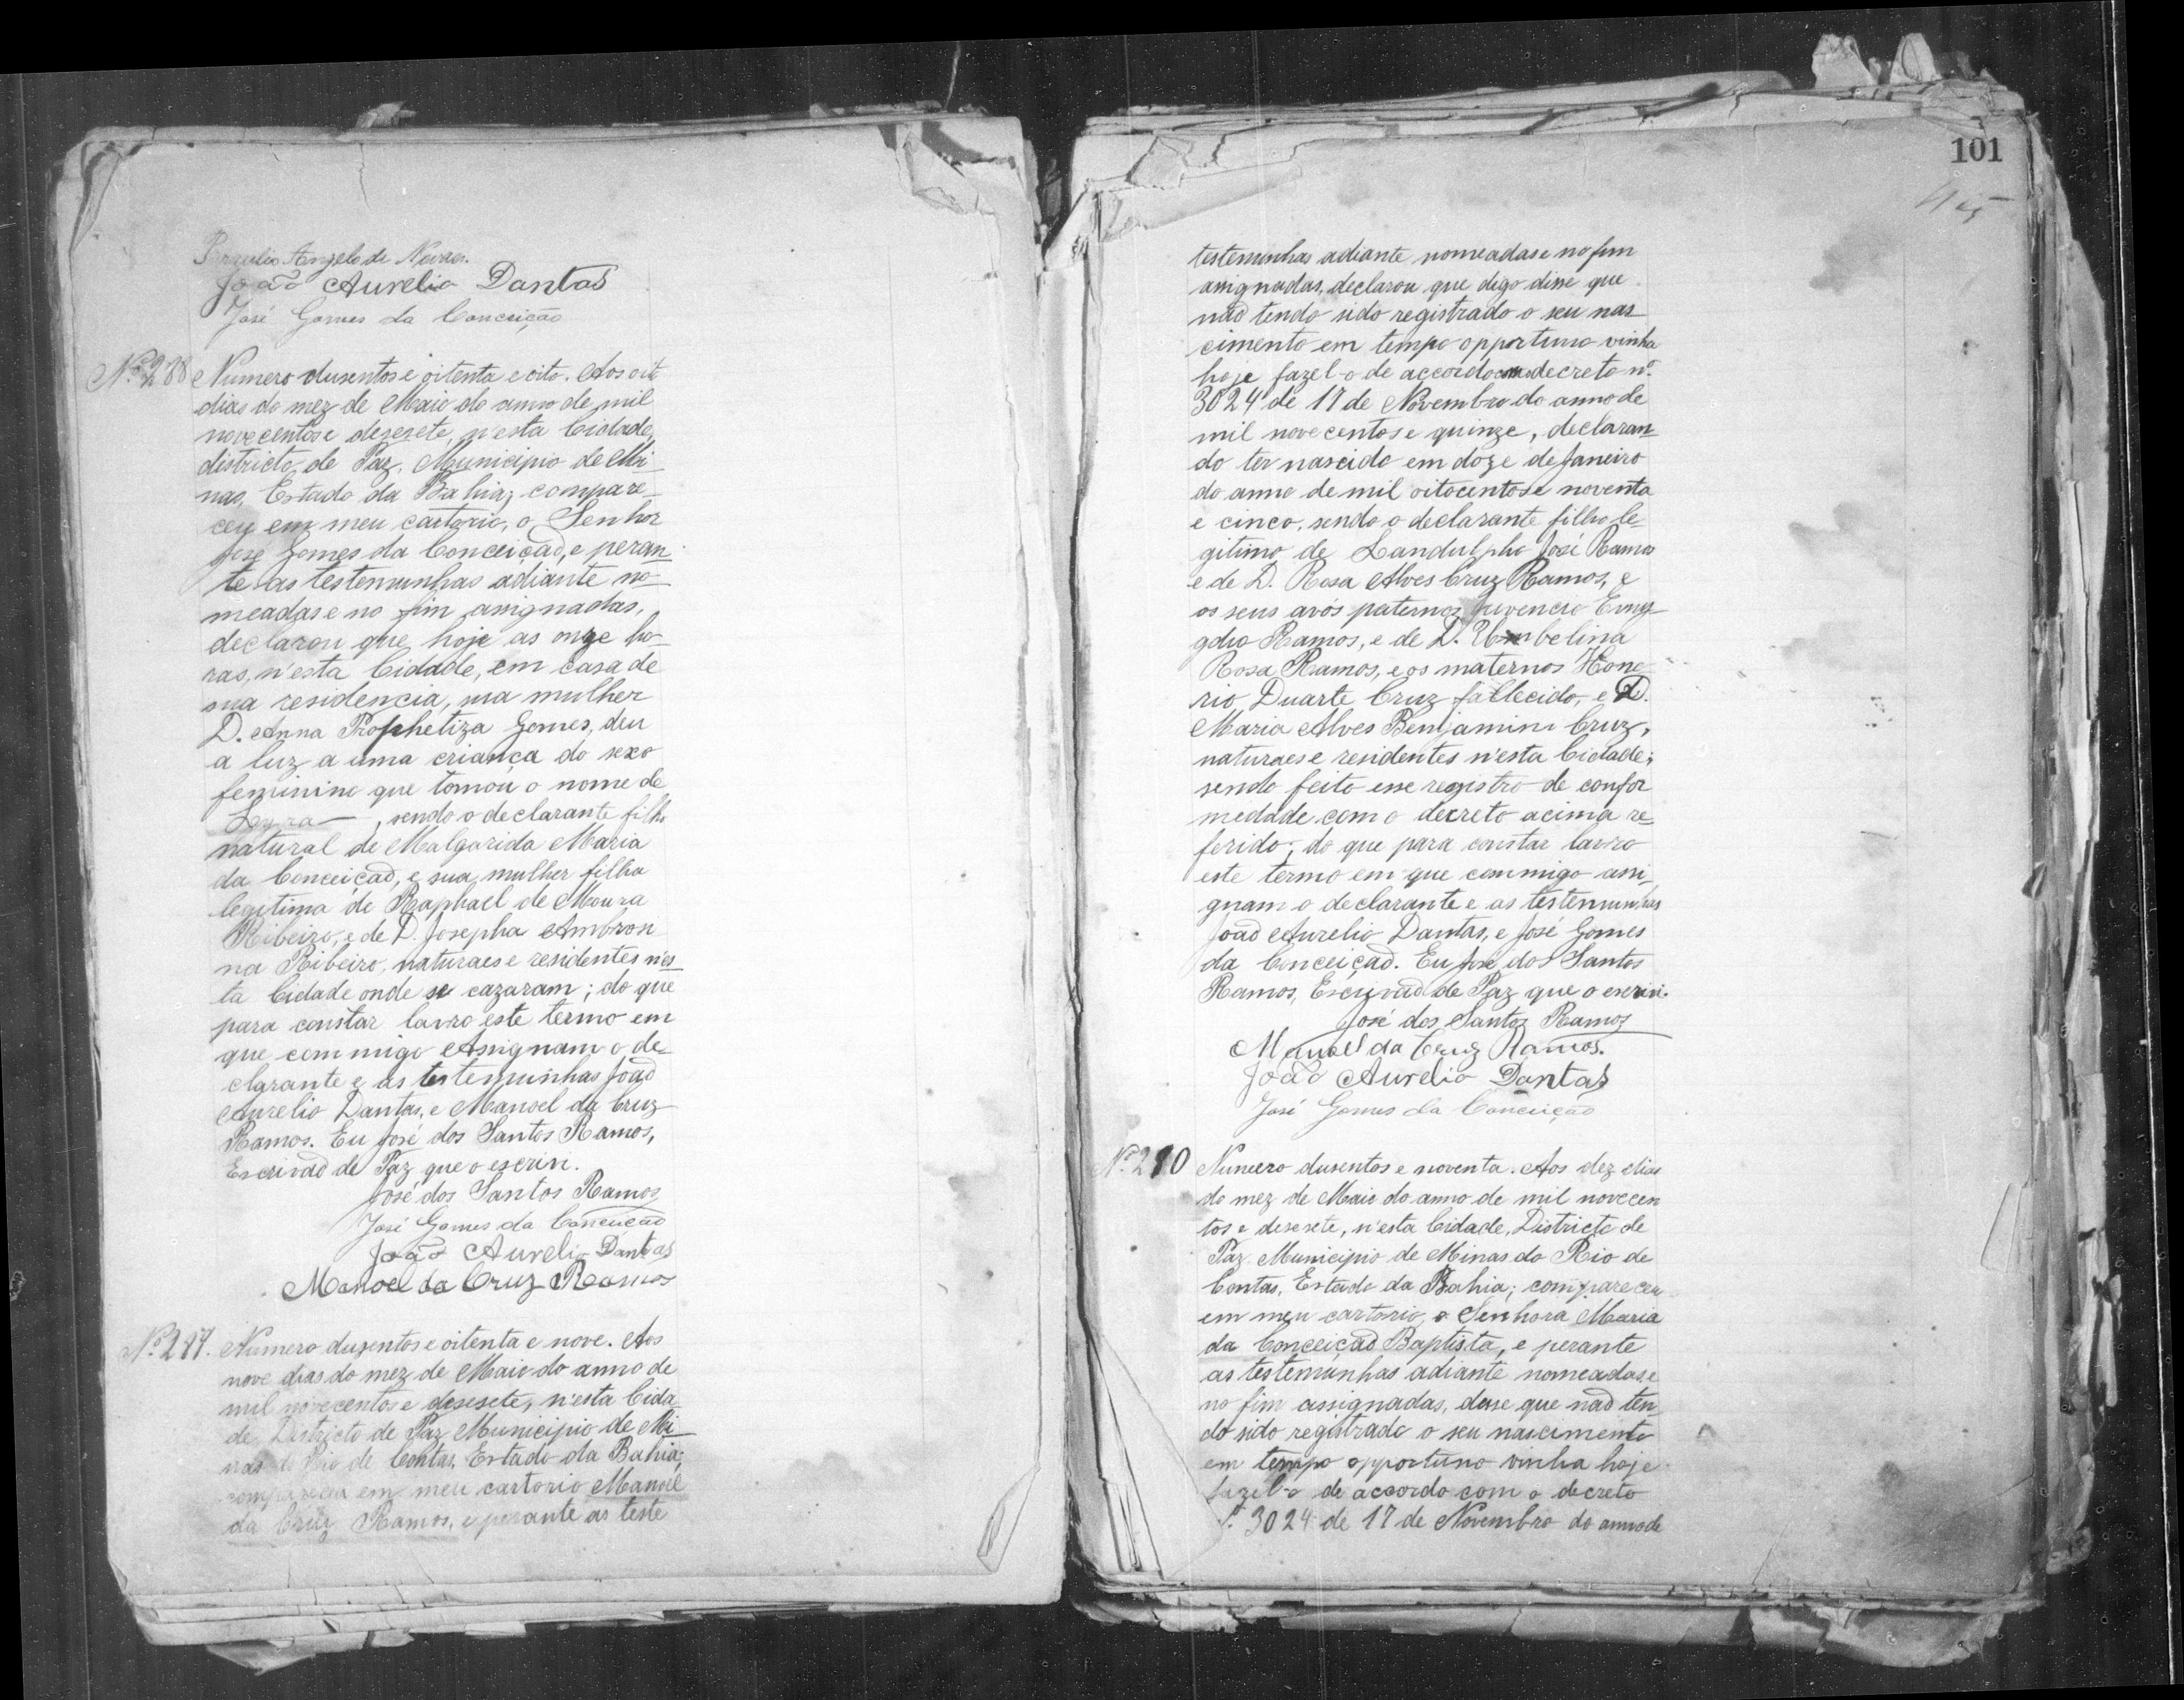 Angelo de Novaes.
João Aurelio Dantas
José Gomes da Conceição
Nº 288 Numero dusentos e oitenta e oito. Aos oito
dias do mez de Maio do anno de mil
novecentos e desesete, n'esta Cidade,
districto de Paz, Municipio de Mi-
nas, Estado da Bahia, compare-
ceu em meu cartorio, o Senhor
José Gomes da Conceição, e peran-
te as testemunhas adiante no-
meadas e no fim assignadas,
declarou que hoje as onze ho-
ras, n'esta Cidade, em casa de
sua residencia, sua mulher
D. Anna Prophetiza Gomes, deu
a luz a uma criança do sexo
feminino que tomou o nome de
, sendo o declarante filho
natural de Malgarida Maria
da Conceição, e sua mulher filha
legitima de Raphael de Moura
Ribeiro, e de D. Josepha Ambrosi
na Ribeiro, naturaes e residentes n'es-
ta Cidade onde se cazaram; do que
para constar lavro este termo em
que commigo Assignam o de-
clarante e as testemunhas João
Aurelio Dantas, e Manoel da Cruz
Ramos. Eu José dos Santos Ramos,
Escrivão de Paz que o escrivi.
José dos Santos Ramos
José Gomes da Conceição
João Aurelio Dantas
Manoel da Cruz Ramos
Nº 289. Numero duzentos e oitenta e nove. Aos
nove dias do mez de Maio do anno de
mil novecentos e desesete, n'esta Cida
de, Districto de Paz Municipio de Mi-
nas do Rio de Contas, Estado da Bahia;
compareceu em meu cartorio Manoel
da Cruz Ramos, e perante as teste
101
testemunhas adiante nomeadas e no fim
assignadas, declarou que digo disse que
não tendo sido registrado o seu nas-
cimento em tempo opportuno vinha
hoje fazel-o de accordo com o decreto nº
3024 de 17 de Novembro do anno de
mil novecentos e quinze, declaran-
do ter nascido em doze de Janeiro
do anno de mil oitocentos e noventa
e cinco, sendo o declarante filho le-
gitimo de Landulpho José Ramos
e de D. Rosa Alves Cruz Ramos, e
os seus avós paternos Juvencio Emy-
gdio Ramos, e de D. Umbelina
Rosa Ramos, e os maternos Hono-
rio Duarte Cruz fallecido, e D.
Maria Alves Benjamim Cruz,
naturaes e residentes n'esta Cidade;
sendo feito esse registro de confor
medade com o decreto acima re-
ferido; do que para constar lavro
este termo em que commigo assi-
gnam o declarante e as testemunhas
João Aurelio Dantas, e José Gomes
da Conceição. Eu José dos Santos
Ramos, Escrivão de Paz que o escrivi.
José dos Santos Ramos
Manoel da Cruz Ramos.
João Aurelio Dantas
José Gomes da Conceição
Nº 290 Numero dusentos e noventa. Aos dez dias
do mez de Maio do anno de mil novecen
tos e desesete, n'esta Cidade, Districto de
Paz Municipio de Minas do Rio de
Contas, Estado da Bahia; compareceu
em meu cartorio, a Senhora Maria
da Conceição Baptista, e perante
as testemunhas adiante nomeadas e
no fim assignadas, disse que não ten-
do sido registrado o seu nascimento
em tempo opportuno vinha hoje
fazel-o de accordo com o decreto
nº 3024 de 17 de Novembro do anno de